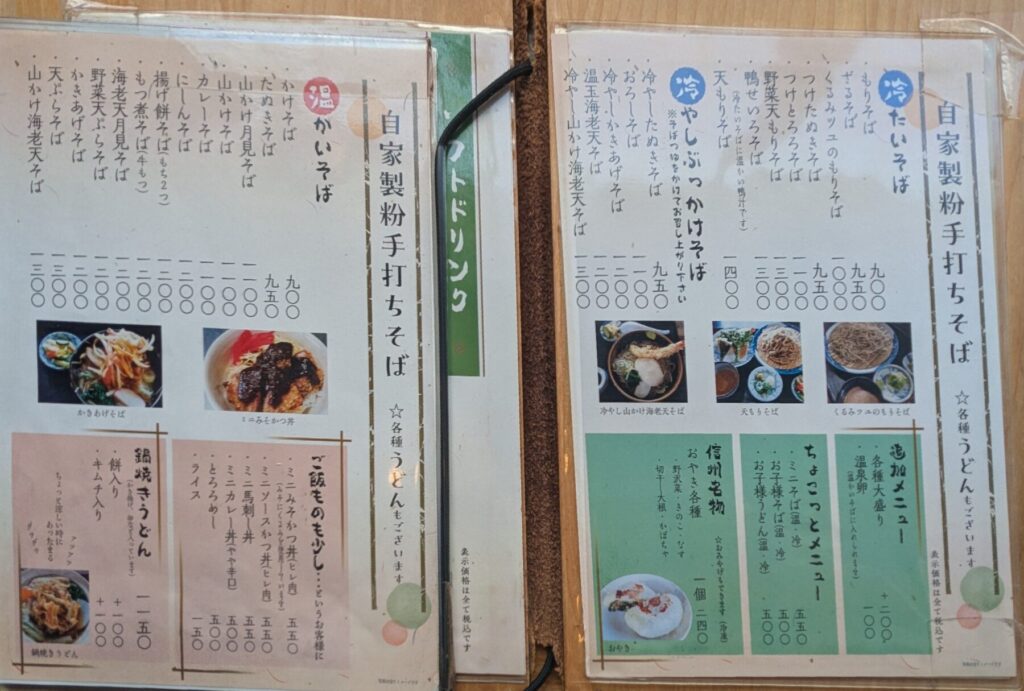 自家製粉手打ちそば ☆各種うどんもございます
表示価格は全て税込です
冷たいそば
・もりそば 九〇〇
・ざるそば 九五〇
・くるみツユのもりそば
・つけたぬきそば 九五〇
・つけとろろそば 一一〇〇
・野菜天もりそば 一三〇〇
・鴨せいろそば 一三〇〇
(冷たいそばに温かい鴨汁です)
・天もりそば 一四〇〇
冷やしぶっかけそば
※そばつゆをかけてお召し上がり下さい
・冷やしたぬきそば 九五〇
・おろしそば 一一〇〇
・冷やしかきあげそば 一二〇〇
・温玉海老天そば 一二〇〇
・冷やし山かけ海老天そば 一三〇〇
くるみツユのもりそば
天もりそば
冷やし山かけ海老天そば
追加メニュー
・各種大盛り +二〇〇
・温泉卵 一〇〇
(温かいそばに入れられます)
ちょこっとメニュー
・ミニそば(温・冷) 五五〇
・お子様そば(温・冷) 五〇〇
・お子様うどん(温・冷) 五〇〇
信州名物
☆おみやげもできます(冷凍)
おやき各種 一個 二四〇
野沢菜・きのこ・なす
・切干し大根・かぼちゃ
おやき
ソフトドリンク
表示価格は全て税込です
自家製粉手打ちそば ☆各種うどんもございます
温かいそば
・かけそば 九〇〇
・たぬきそば 九五〇
・山かけ月見そば
・山かけそば
・カレーそば
・にしんそば
・揚げ餅そば(もち2つ)
・もつ煮そば(牛もつ)
・海老天月見そば
・野菜天ぷらそば
・かきあげそば
・天ぷらそば 一三〇〇
・山かけ海老天そば 一三〇〇
ミニみそかつ丼
かきあげそば
ご飯ものも少し…というお客様に
・ミニみそかつ丼(ヒレ肉) 五五〇
・ミニソースかつ丼(ヒレ肉) 五五〇
・ミニ馬刺し丼 五五〇
・ミニカレー丼(やや辛口) 五〇〇
・とろろめし 五〇〇
・ライス 一五〇
鍋焼きうどん 一一五〇
・餅入り +一〇〇
・キムチ入り +一〇〇
ちょっと涼しい時に
あったまる
アツアツ
グツグツ
鍋焼きうどん